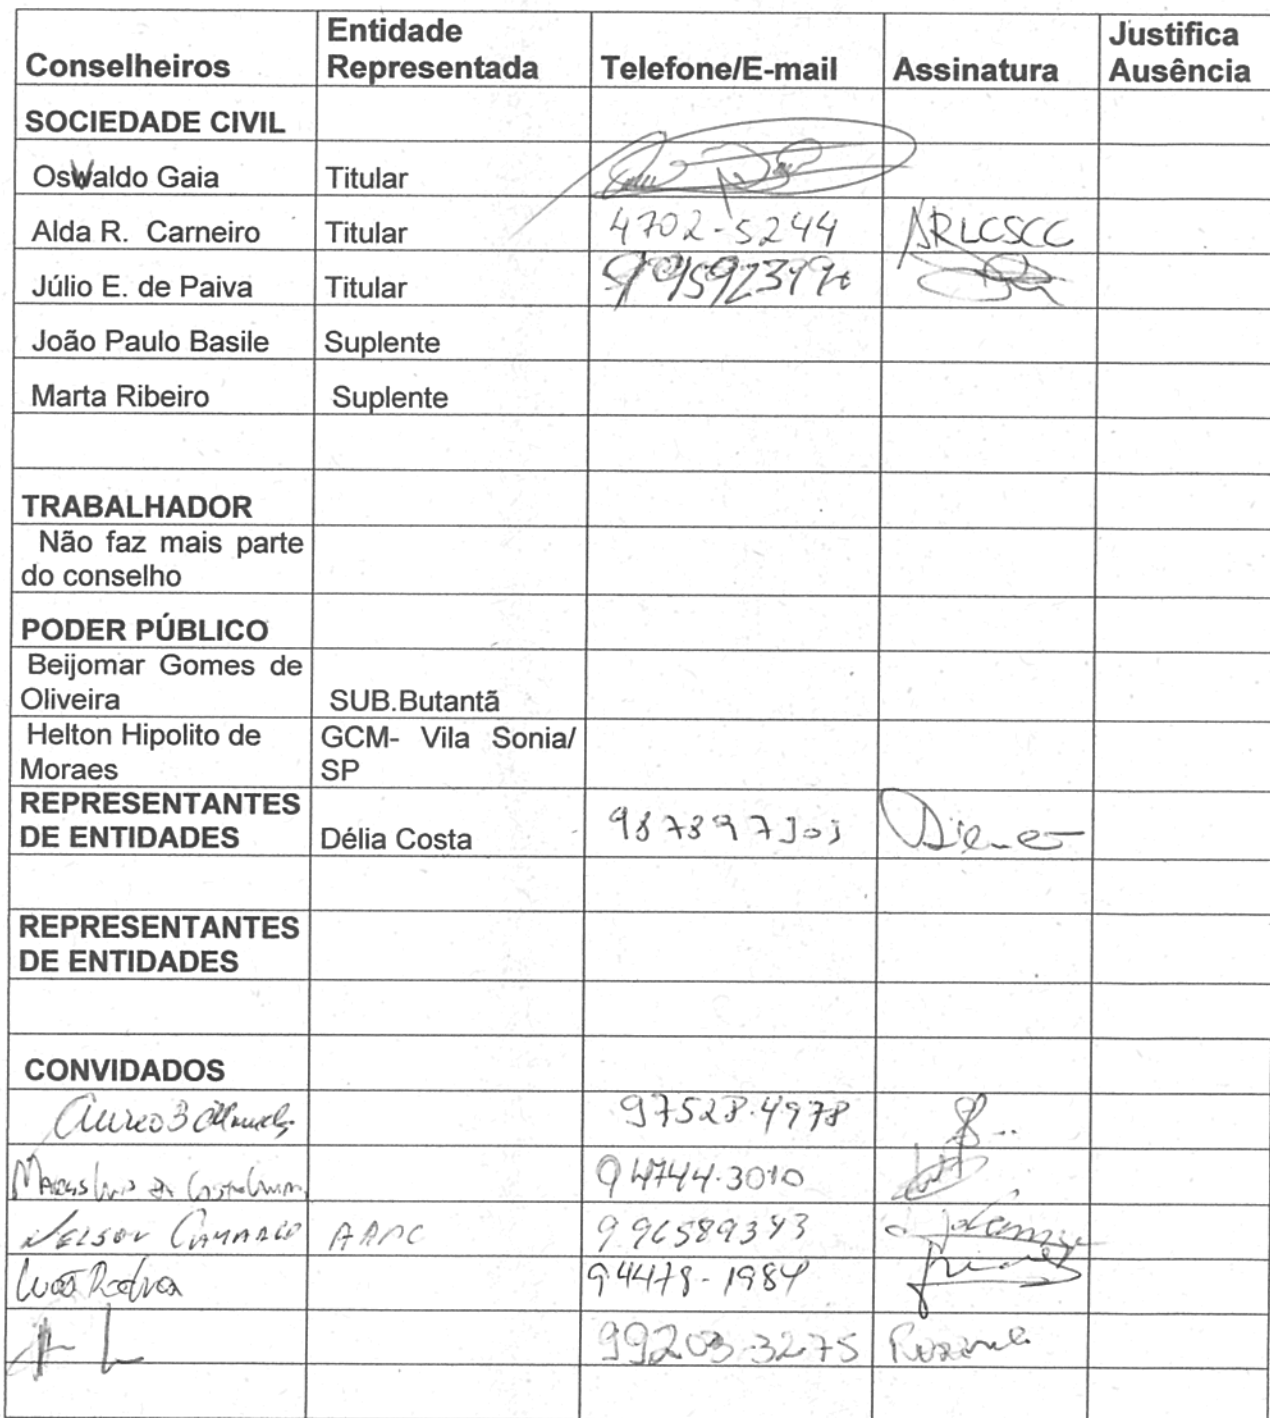 Conselheiros Entidade Representada Telefone/E-mail Assinatura Justifica Ausência
SOCIEDADE CIVIL
Oswaldo Gaia Titular
Alda R. Carneiro Titular 4702-5244 ARLCSCC
Júlio E. de Paiva Titular
João Paulo Basile Suplente
Marta Ribeiro Suplente
TRABALHADOR
Não faz mais parte
do conselho
PODER PÚBLICO
Beijomar Gomes de
Oliveira SUB.Butantã
Helton Hipolito de
Moraes GCM- Vila Sonia/
SP
REPRESENTANTES
DE ENTIDADES Délia Costa
REPRESENTANTES
DE ENTIDADES
CONVIDADOS
97528.4978
94744.3010
Nelson Camargo 996589343
94478-1984
99203-3275